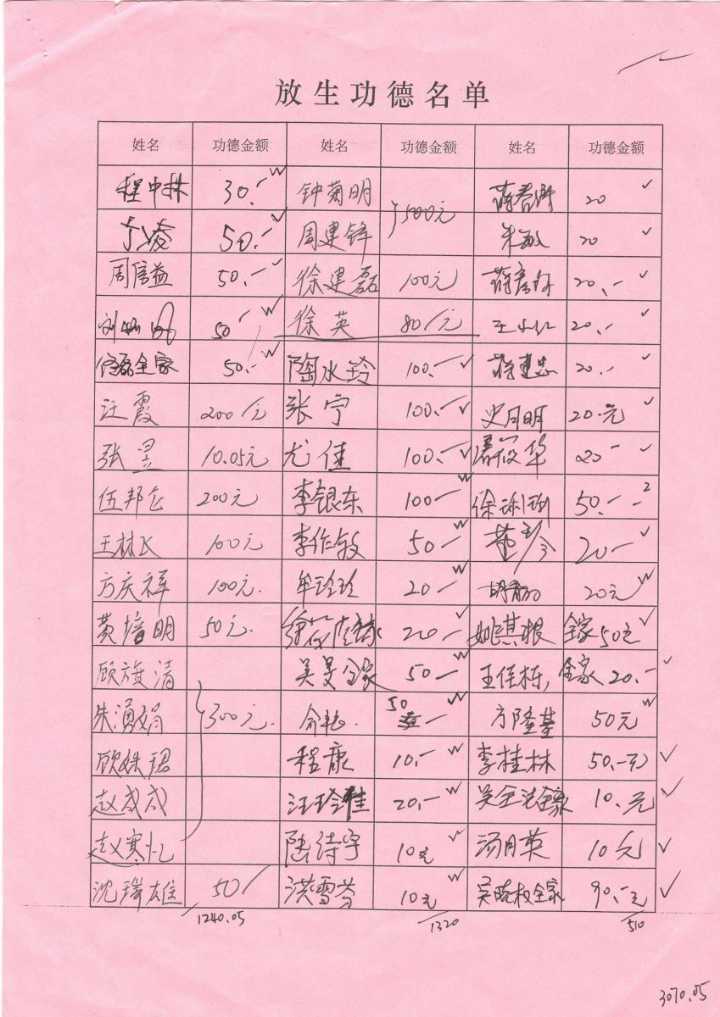 放生功德名单
姓名 功德金额 姓名 功德金额 姓名 功德金额
程中林 30.- 钟菊明 500元 20
50.- 周建锋 朱敏 20
周信益 50.- 徐建磊 100元 20.-
50 徐英 80/元 20.-
全家 50.- 陶水玲 100.- 20.-
汪霞 200/元 张宁 100.- 史月明 20.元
张昱 10.05元 尤佳 100.- 华 20-
伍邦 200元 李银东 100- 徐 50.-
王林 100元 李作敏 50- 20-
方庆祥 100元. 牟玲玲 20- 20元
黄培明 50元. 20- 姚其根 全家 50元
顾 清 吴旻全家 50- 王佳栋, 全家 20.-
朱湧娟 300元. 50- 方隆基 50元
顾姝珺 程康 10.- 李桂林 50.-元
赵成成 汪玲雅 20.- 全家 10.元
赵寒忆 陆诗宇 10元 汤月英 10元
沈瑞雄 50/ 洪雪芬 10元 吴 权全家 90.-元
1240.05 1320 510
3070.05